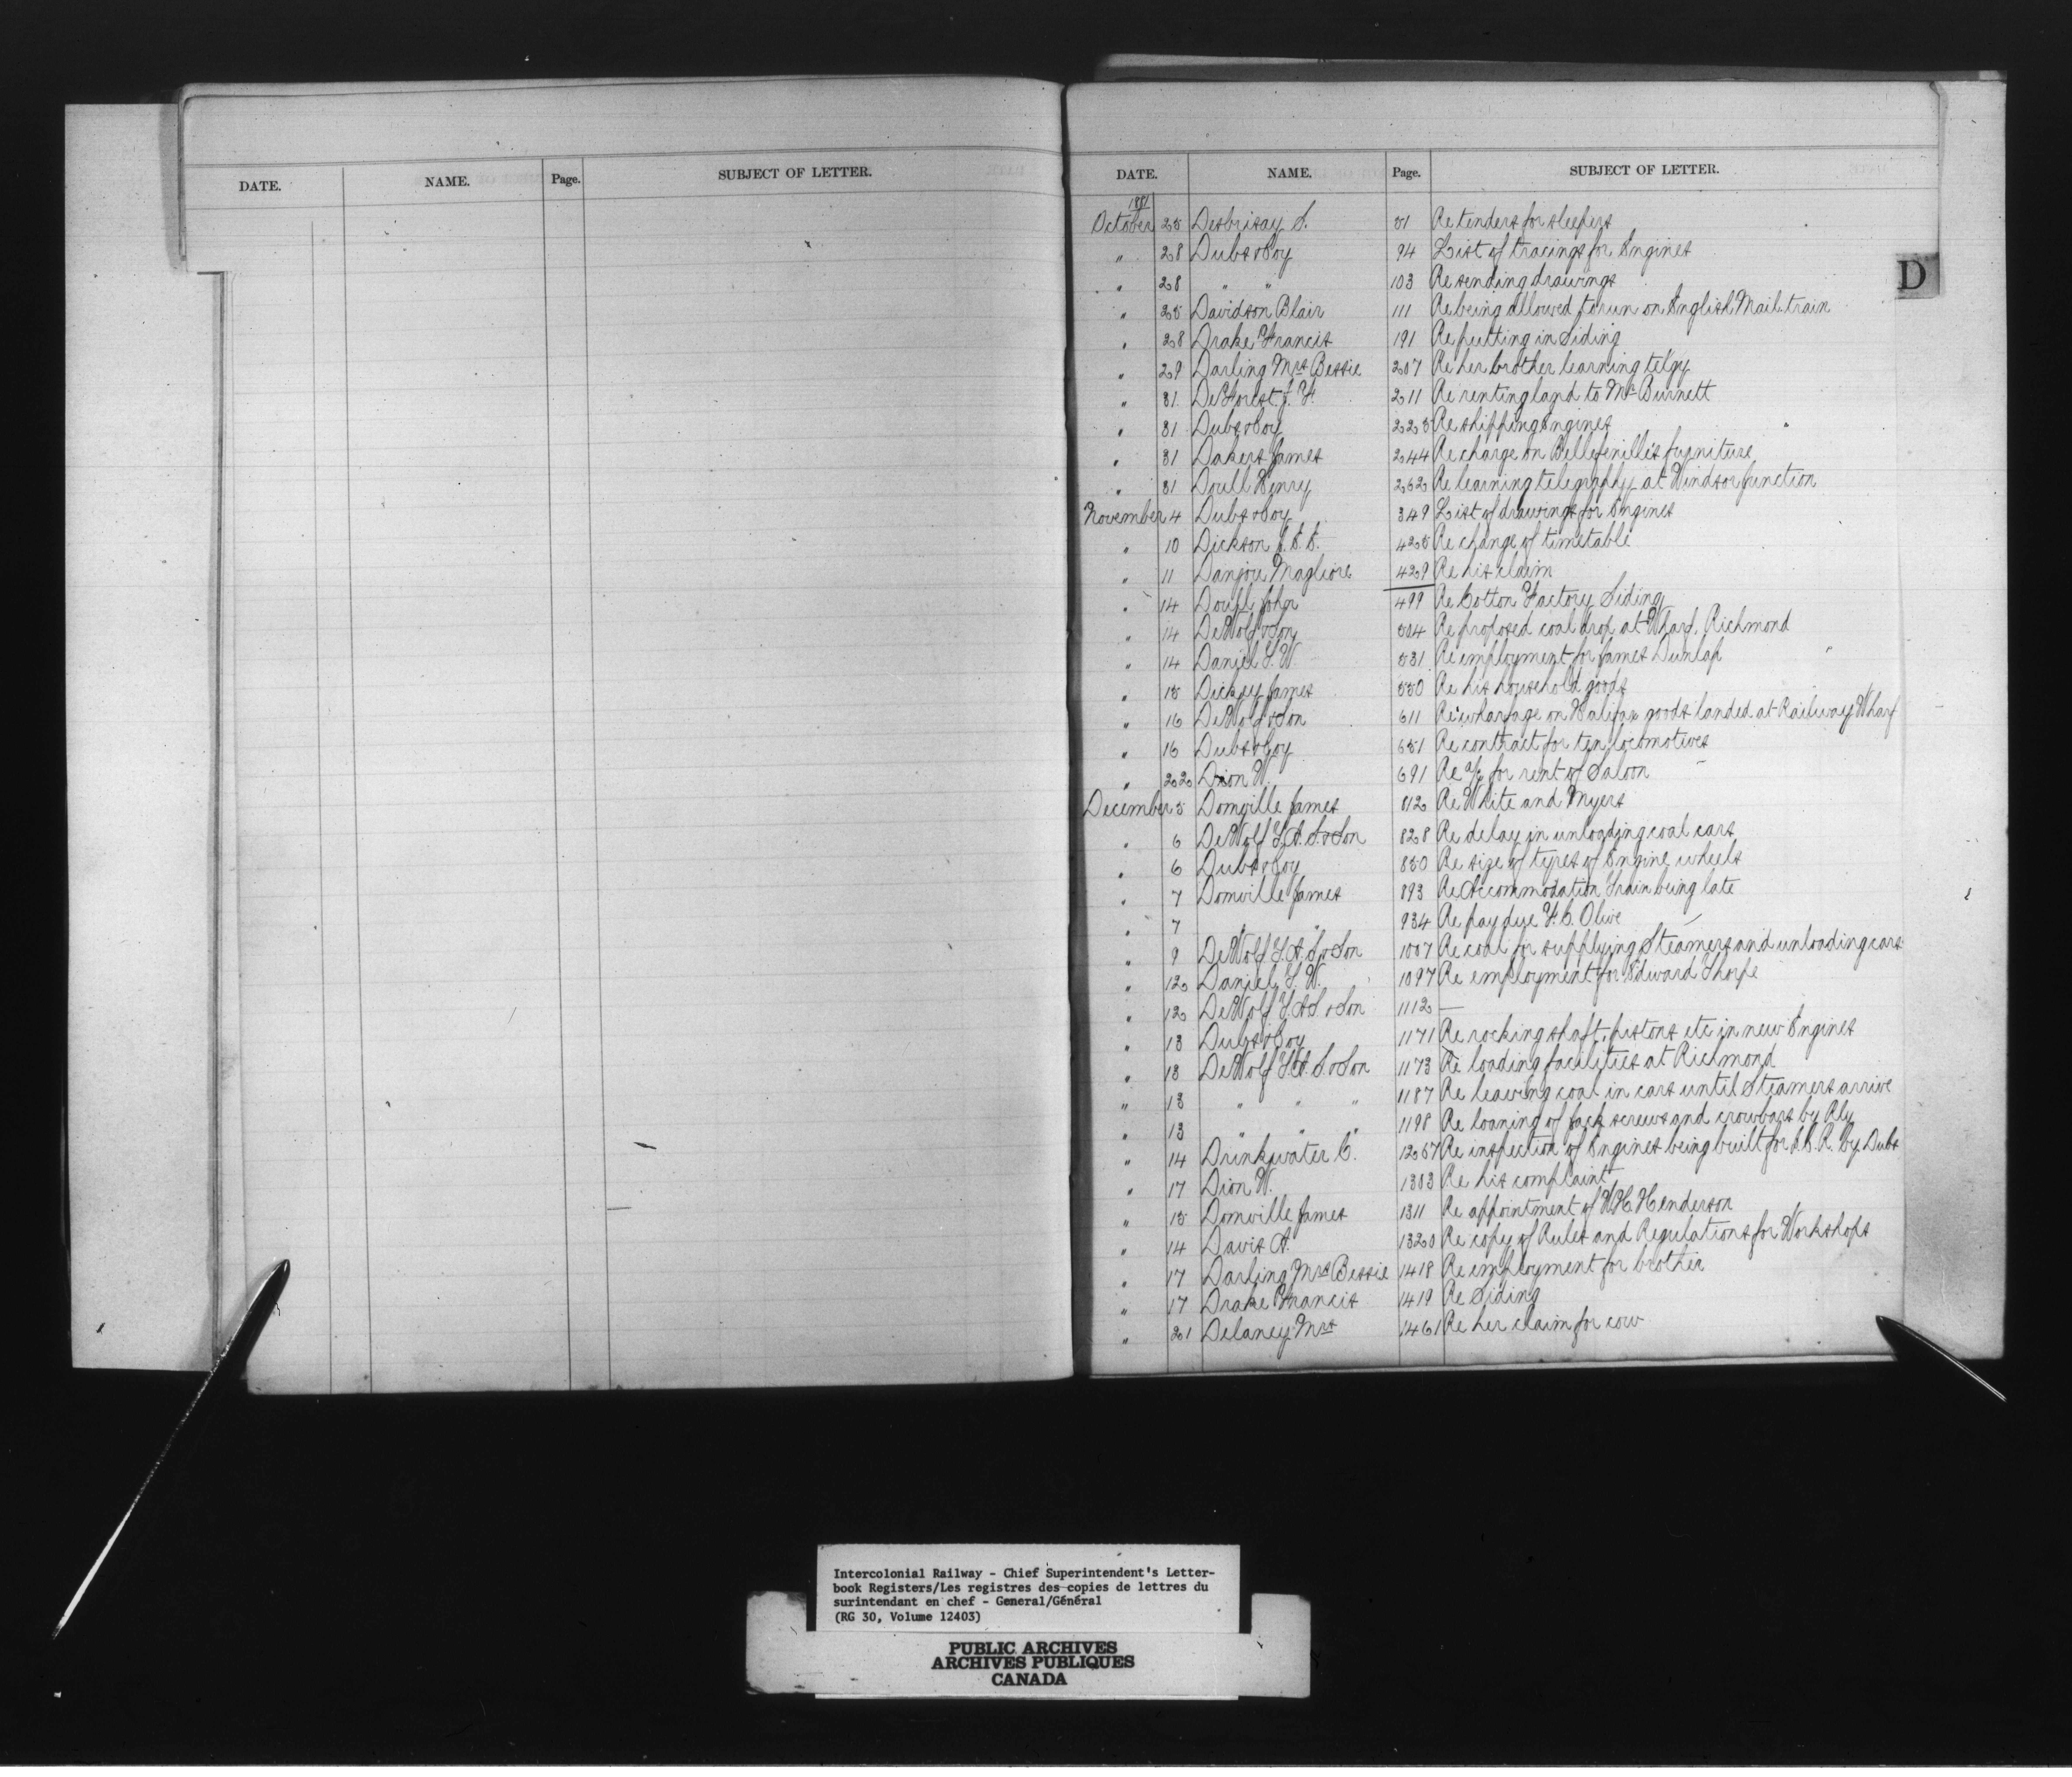 DATE. NAME. Page. SUBJECT OF LETTER.
DATE. NAME. Page. SUBJECT OF LETTER.
D
1881
October 25 Desbrisay S. 51 Re tenders for sleepers
" 28 Dubs & Coy 94 List of tracings for Engines
" 28 " " 103 Re sending drawings
" 25 Davidson Blair 111 Re being allowed to run on English Mail train
" 28 Drake Francis 191 Re putting in Siding
" 29 Darling Mrs Bessie 207 Re her brother learning telgy
" 31 DeForest J. H. 211 Re renting land to Mr Burnett
" 31 Dubs & Coy 225 Re shipping Engines
" 31 Dakers James 244 Re charge on Bellefeuille's furniture
" 31 Doull Henry 262 Re learning telegraphy at Windsor Junction
November 4 Dubs & Coy 349 List of drawings for Engines
" 10 Dickson J. E. E. 425 Re change of timetable
" 11 Danjou Magliore 429 Re his claim
" 14 Doull John 499 Re Cotton Factory Siding
" 14 DeWolf & Son 504 Re proposed coal drop at Wharf, Richmond
" 14 Daniel T. W. 531 Re employment for James Dunlap
" 15 Dickey James 550 Re his household goods
" 16 DeWolf & Son 611 Re wharfage on Halifax goods landed at Railway Wharf
" 16 Dubs & Coy 651 Re contract for ten locomotives
" 22 Dion W. 691 Re a/c for rent of Saloon
December 5 Domville James 812 Re White and Myers
" 6 DeWolf T. A. S. & Son 828 Re delay in unloading coal cars
" 6 Dubs & Coy 850 Re size of tyres of Engine wheels
" 7 Domville James 893 Re Accommodation Train being late
" 7 " " 934 Re pay due H. C. Olive
" 9 DeWolf T. A. S. & Son 1007 Re coal for supplying Steamers and unloading cars
" 12 Daniel T. W. 1097 Re employment for Edward Thorpe
" 12 DeWolf T. A. S. & Son 1112 —
" 13 Dubs & Coy 1171 Re rocking shaft, pistons etc in new Engines
" 13 DeWolf T. A. S. & Son 1173 Re loading facilities at Richmond
" 13 " " " 1187 Re leaving coal in cars until Steamers arrive
" 13 " " " 1198 Re loaning of Jack screws and crowbars by Rly
" 14 Drinkwater C. 1257 Re inspection of Engines being built for I. C. R. by Dubs
" 17 Dion W. 1303 Re his complaint
" 15 Domville James 1311 Re appointment of W. H. Henderson
" 14 Davis A. 1320 Re copy of Rules and Regulations for Workshops
" 17 Darling Mrs Bessie 1418 Re employment for brother
" 17 Drake Francis 1419 Re Siding
" 21 Delaney Mrs 1461 Re her claim for cow
Intercolonial Railway - Chief Superintendent's Letter-
book Registers/Les registres des copies de lettres du
surintendant en chef - General/Général
(RG 30, Volume 12403)
PUBLIC ARCHIVES
ARCHIVES PUBLIQUES
CANADA